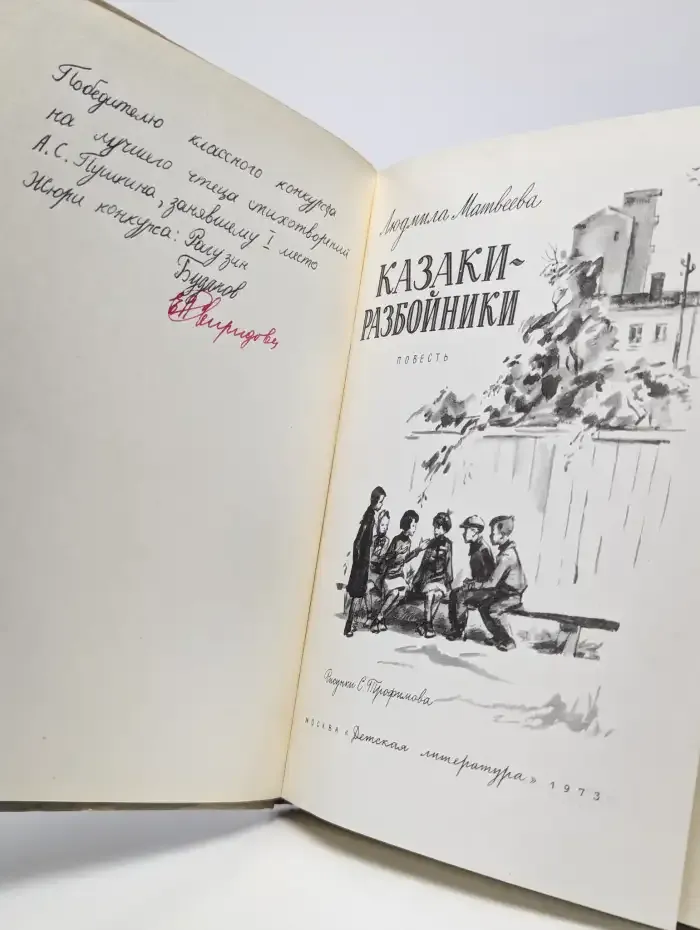 Победителю классного конкурса
на лучшего чтеца стихотворений
А.С. Пушкина, занявшему I место
Жюри конкурса: Рагузин
Будаков
Людмила Матвеева
КАЗАКИ-
РАЗБОЙНИКИ
ПОВЕСТЬ
Рисунки С. Трофимова
МОСКВА «Детская литература» 1973